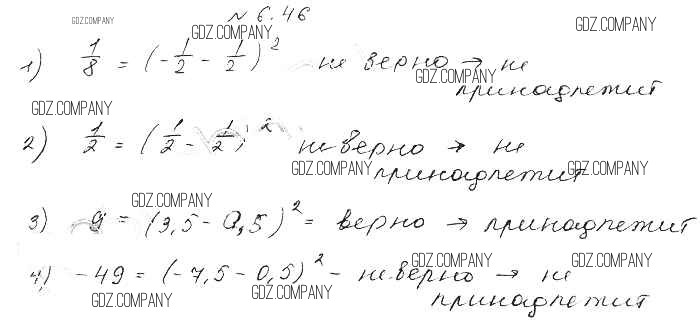 № 6.46
GDZ.COMPANY GDZ.COMPANY GDZ.COMPANY
1) 1/8 = (-1/2 - 1/2)² не верно → не
GDZ.COMPANY
принадлежит
GDZ.COMPANY
2) 1/2 = (1/2 - 1/2)² не верно → не
GDZ.COMPANY GDZ.COMPANY
принадлежит
GDZ.COMPANY
3) 9 = (3,5 - 0,5)² = верно → принадлежит
GDZ.COMPANY GDZ.COMPANY
4) -49 = (-7,5 - 0,5)² - не верно → не
GDZ.COMPANY GDZ.COMPANY
принадлежит